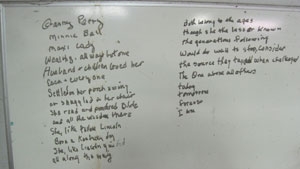 Granny Perry
Minnie Bell
Maxi Lady
Wealthy, all who before one
Husband & children loved her
Each & everyone
Settled on her porch swing
or snuggled in her chair
She read and pondered Bible
and all the wisdom there
She, like Father Lincoln
Born a Kentucky day
She, like Lincoln
all along the way
Both belong to the ages
though she the lesser known
The generations following
Would do well to stop, consider
the source they tapped when challenged
The One above all others
today
tomorrow
forever
I am